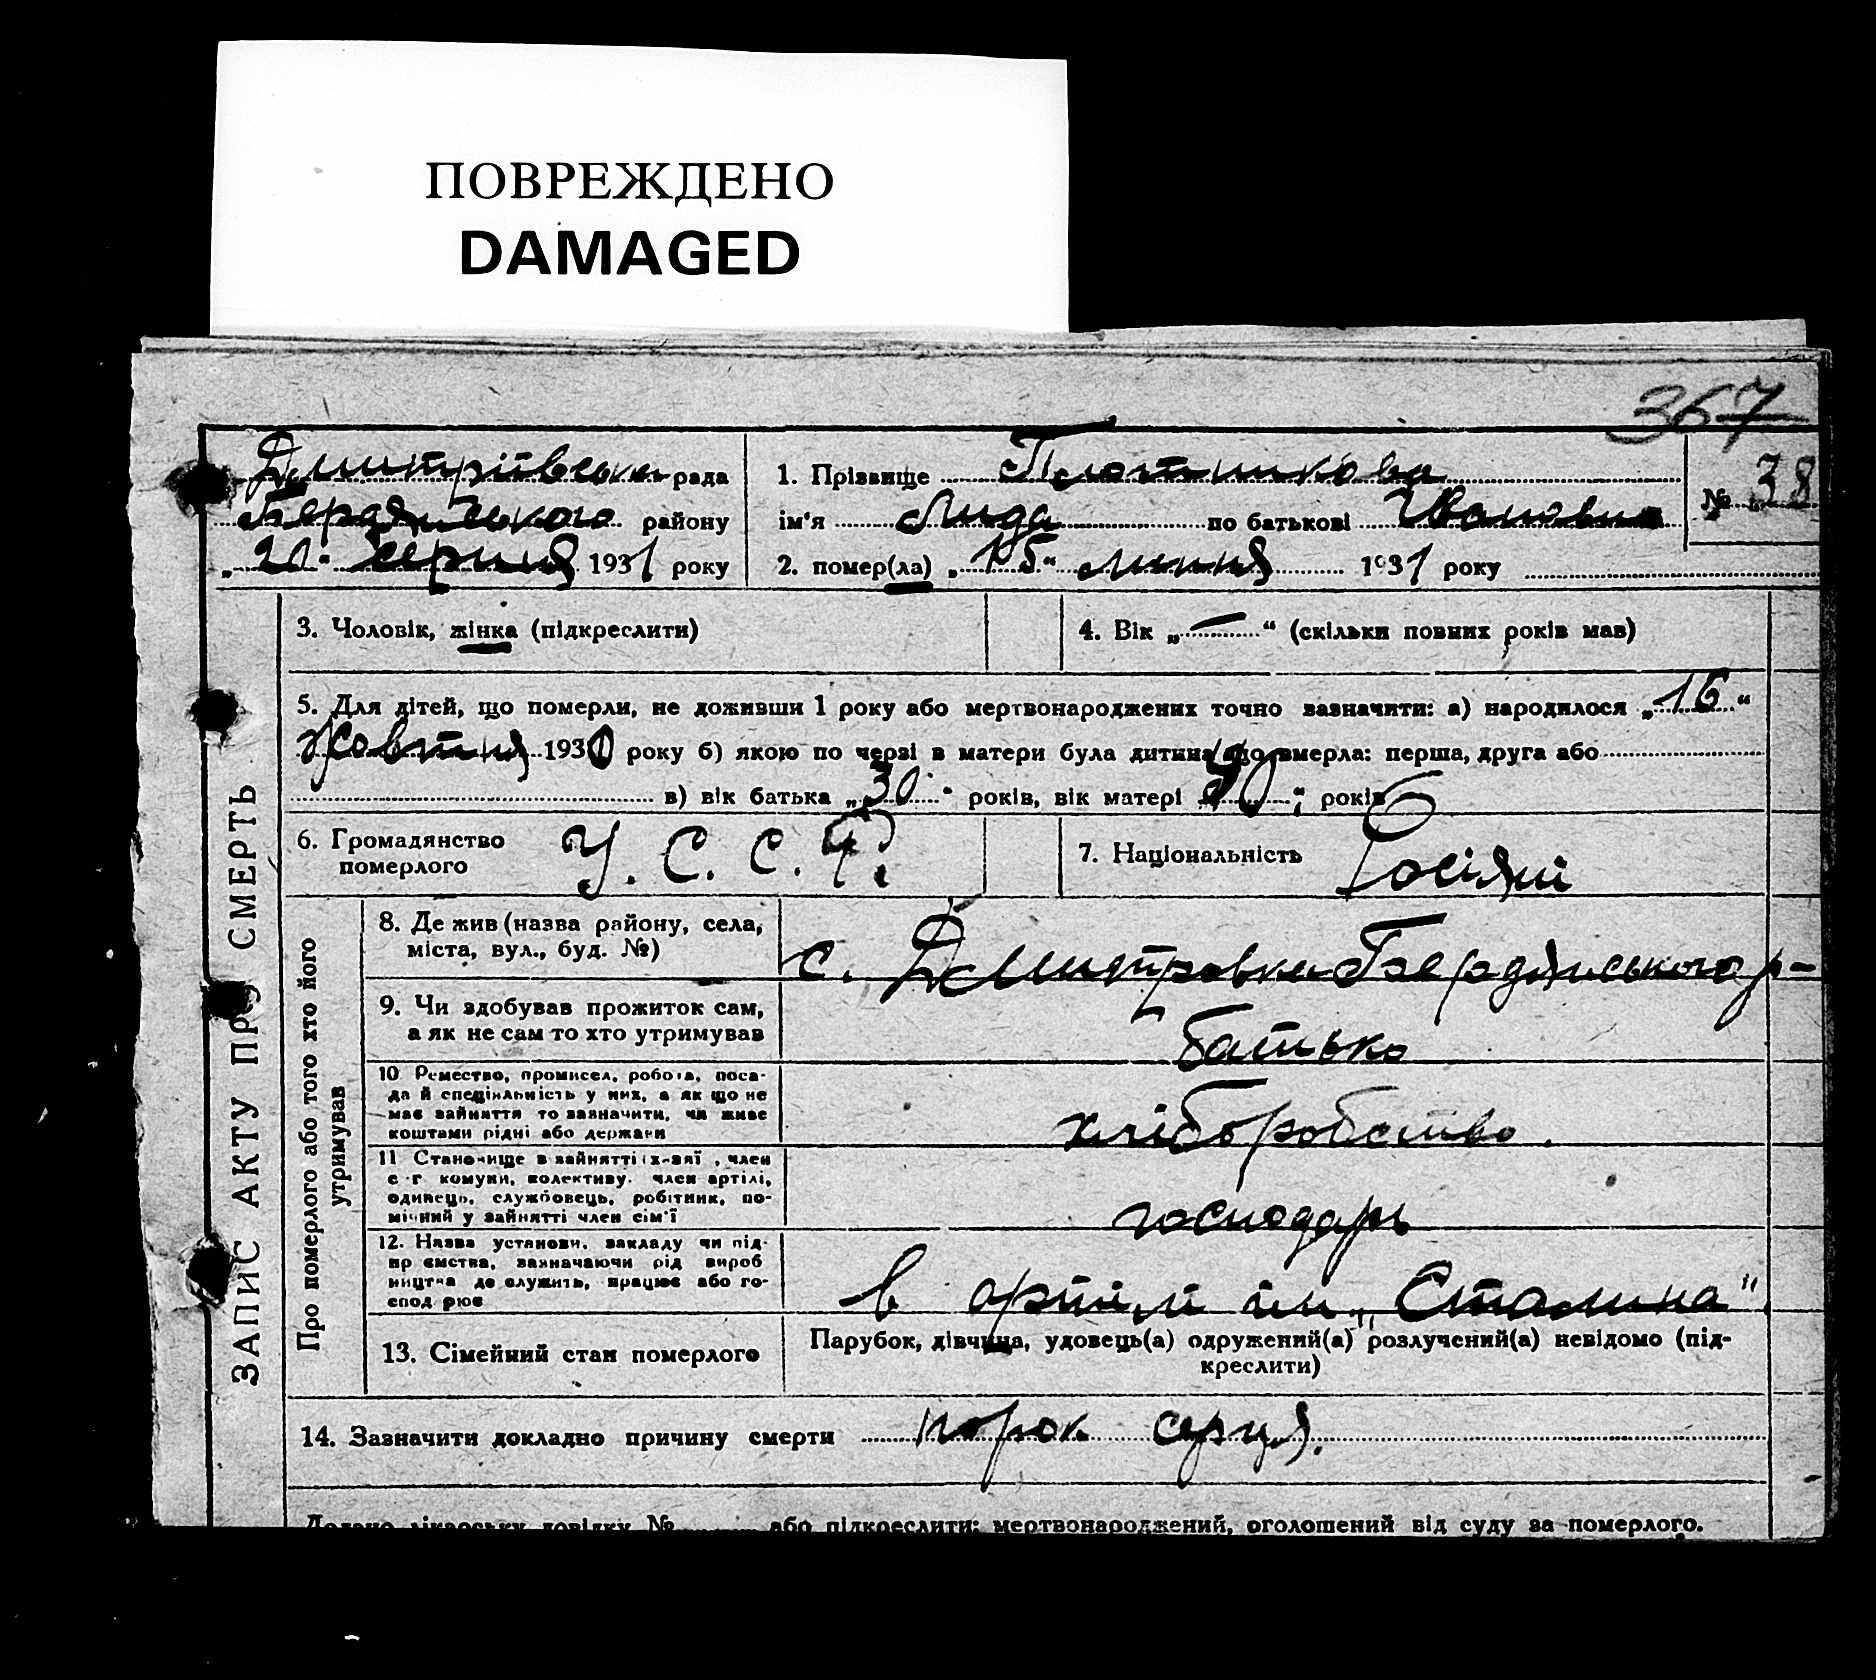 ПОВРЕЖДЕНО
DAMAGED
367
Дмитрівська рада
Бердянського району
„20“ серпня 1931 року
1. Прізвище Плотникова
ім'я Лида по батькові Ивановна
№ 38
2. помер(ла) „15“ липня 1931 року
3. Чоловік, жінка (підкреслити)
4. Вік „—“ (скільки повних років мав)
5. Для дітей, що померли, не доживши 1 року або мертвонароджених точно зазначити: а) народилося „16“
Жовтня 1930 року б) якою по черзі в матери була дитина що вмерла: перша, друга або
в) вік батька „30“ років, вік матері 30 років
6. Громадянство
померлого
У. С. С. Р.
7. Національність Росіян
ЗАПИС АКТУ ПРО СМЕРТЬ
Про померлого або того хто його
утримував
8. Де жив (назва району, села,
міста, вул., буд. №)
с. Дмитровка Бердянського р-
9. Чи здобував прожиток сам,
а як не сам то хто утримував
батько
10 Ремество, промисел, робота, поса-
да й спеціяльність у них, а як що не
має зайняття то зазначити, чи живе
коштами рідні або держави
хліборобство.
11 Становище в зайнятті (х-вяї, член
с-г комуни, колективу. член артілі,
одинець, службовець, робітник, по-
мічний у зайнятті член сім'ї
господарь
12. Назва установи, закладу чи під-
пр ємства, зазначаючи рід вироб
ництва де служить, працює або го-
спод рює
в артілі ім „Сталина“
13. Сімейний стан померлого
Парубок, дівчина, удовець(а) одружений(а) розлучений(а) невідомо (під-
креслити)
14. Зазначити докладно причину смерти порок серця.
Додано лікарську довідку № або підкреслити: мертвонароджений, оголошений від суду за померлого.